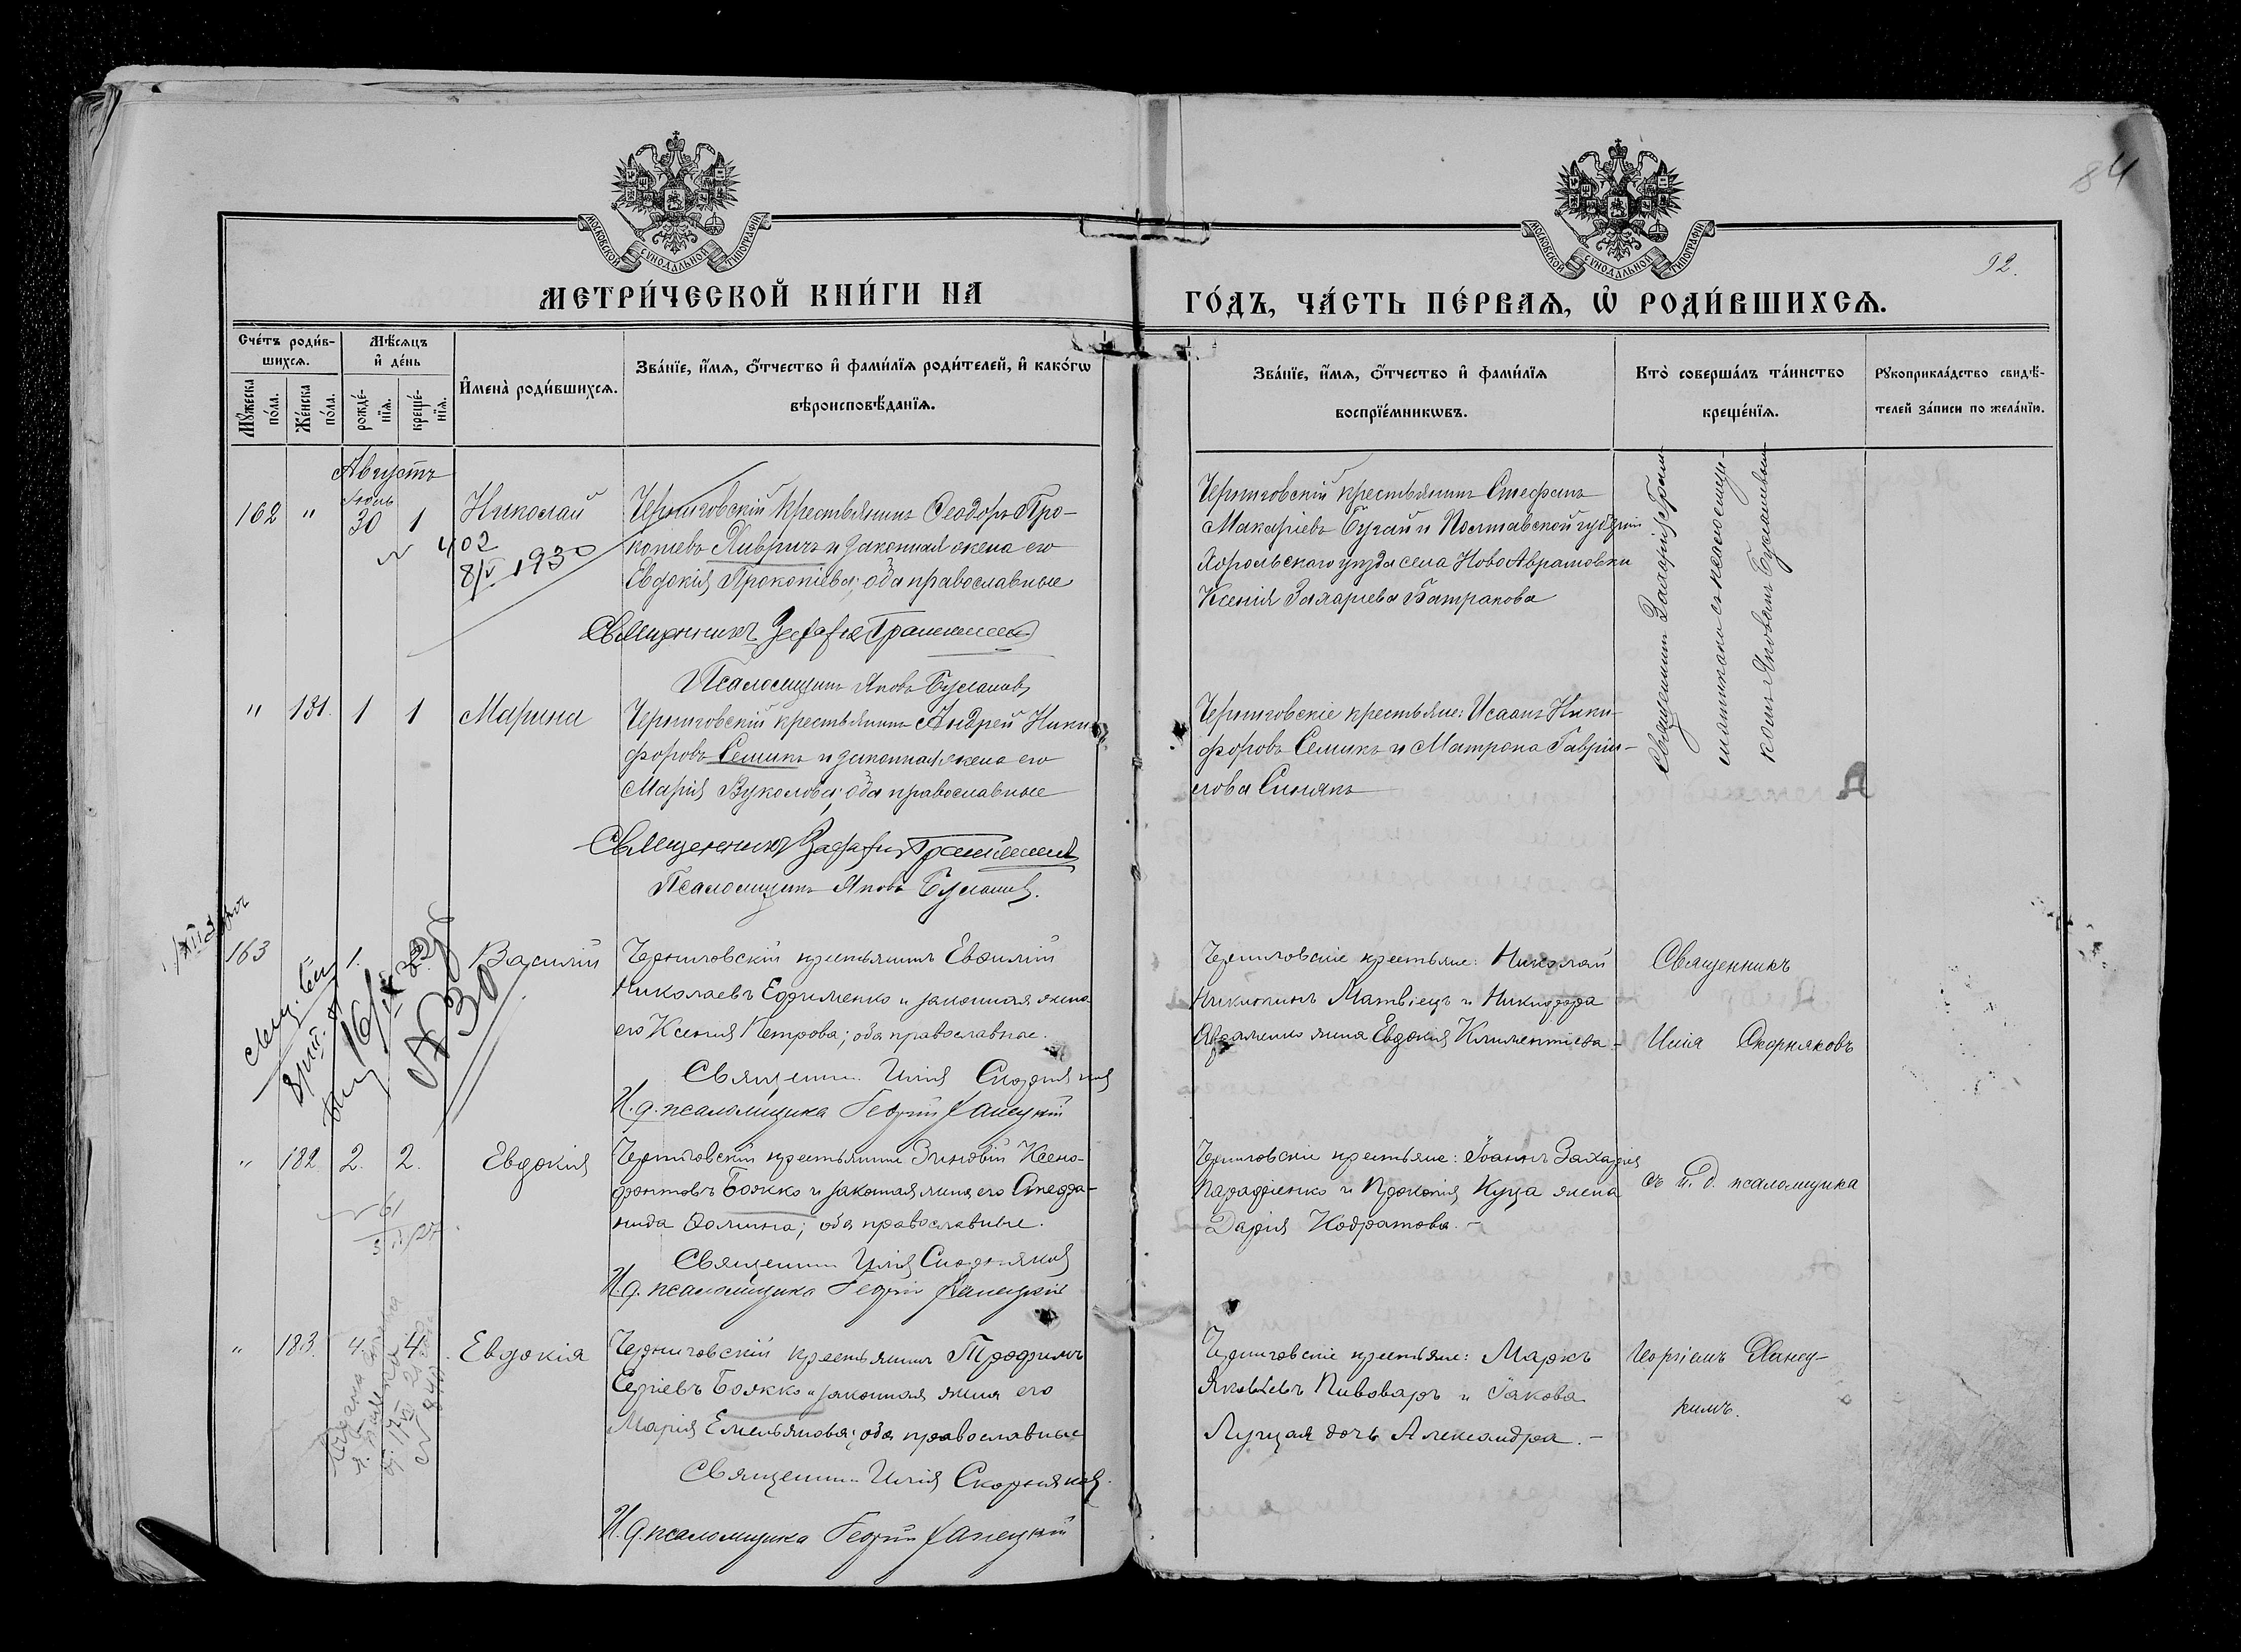 84
92.
МОСКОВСКОЙ СѴНОДАЛЬНОЙ ТИПОГРАФІИ
МОСКОВСКОЙ СѴНОДАЛЬНОЙ ТИПОГРАФІИ
МЕТРИ́ЧЕСКОЙ КНИ́ГИ НА
ГО́ДЪ, ЧА́СТЬ ПЕ́РВАѦ, Ѡ҆ РОДИ́ВШИХСѦ.
Сче́тъ роди́в-
шихсѧ.
Мѣ́сѧцъ
и҆ де́нь
Мꙋ́жеска по́ла.
Же́нска по́ла.
рожде́-
нїѧ.
креще́-
нїѧ.
И҆мена̀ роди́вшихсѧ.
Зва́нїе, и҆́мѧ, ѻ҆́тчество и҆ фами́лїѧ роди́телей, и҆ како́гѡ
вѣроисповѣ́данїѧ.
Зва́нїе, и҆́мѧ, ѻ҆́тчество и҆ фами́лїѧ
воспрїе́мникѡвъ.
Кто̀ соверша́лъ та́инство
креще́нїѧ.
Рꙋкоприкла́дство свидѣ́-
телей за́писи по жела́нїю.
Августъ
162 " 30 1 Николай
402
8/V 1930
Черниговскій крестьянинъ Ѳеодоръ Про-
и законная жена его
Евдокія Прокопіева; оба православные
Священникъ Захарія
Псаломщикъ Яковъ
Черниговскій крестьянинъ Стефанъ
Макаріевъ Бугай и Полтавской губерніи
Хорольскаго уѣзда села НовоАврамовки
Ксенія Захаріева Батракова
Священникъ Захарія
псаломщикомъ Яковомъ
" 131. 1 1 Марина
Черниговскій крестьянинъ Андрей Ники-
форовъ Семикъ и законная жена его
Марія Вуколова; оба православные
Священникъ Захарія
Псаломщикъ Яковъ
Черниговскіе крестьяне: Исаакъ Ники-
форовъ Семикъ и Матрона Гаврі-
лова
163 1. Василій
16/IX
№ 30
Черниговскій крестьянинъ Евѳимій
Николаевъ Ефименко и законная жена
его Ксенія Петрова; оба православные.
Священникъ Илія Скорняковъ
И. д. псаломщика Георгій Ханецкій
Черниговскіе крестьяне: Николай
Матвіецъ и Никифора
Авраменко жена Евдокія Климентіева –
Священникъ
Илія Скорняковъ
" 182. 2. 2. Евдокія
61
Черниговскій крестьянинъ Зиновій Ксено-
фонтовъ Божко и законная жена его Стефа-
нида Ѳомина; оба православные.
Священникъ Илія Скорняковъ
И. д. псаломщика Георгій Ханецкій
Черниговскіе крестьяне: Іоаннъ Захаріевъ
и Прокопія Куца жена
Дарія Кодратова. –
съ и. д. псаломщика
" 183. 4. 4. Евдокія
Черниговскій крестьянинъ Трофимъ
Сергіевъ Божко и законная жена его
Марія Емельянова; оба православные
Священникъ Илія Скорняковъ.
И. д. псаломщика Георгій Ханецкій
Черниговскіе крестьяне: Маркъ
Яковлевъ Пивоваръ и Іакова
дочь Александра. –
Георгіемъ Ханец-
кимъ.